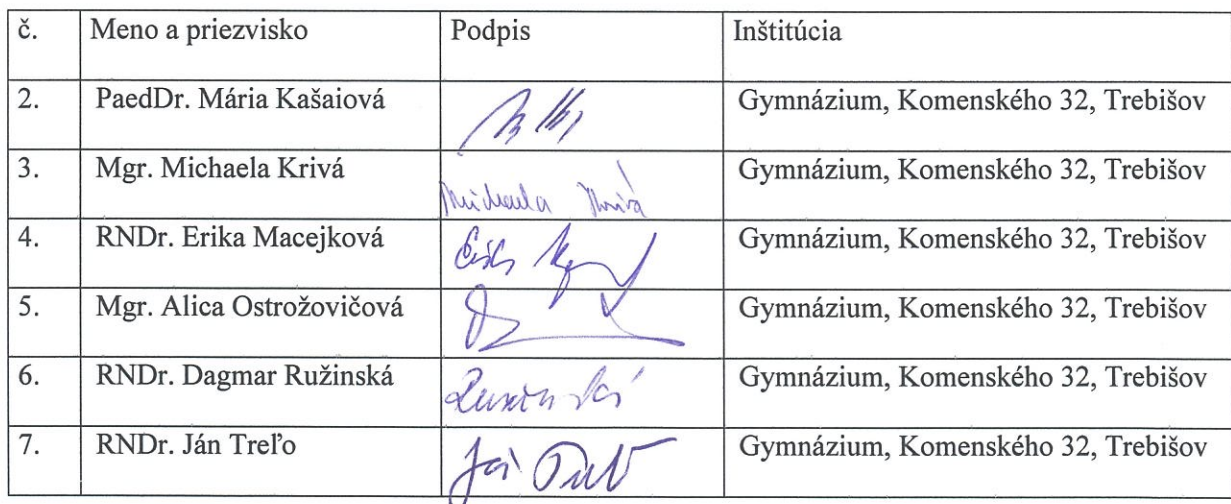 č. Meno a priezvisko Podpis Inštitúcia
2. PaedDr. Mária Kašaiová Gymnázium, Komenského 32, Trebišov
3. Mgr. Michaela Krivá Michaela Krivá Gymnázium, Komenského 32, Trebišov
4. RNDr. Erika Macejková Gymnázium, Komenského 32, Trebišov
5. Mgr. Alica Ostrožovičová Gymnázium, Komenského 32, Trebišov
6. RNDr. Dagmar Ružinská Gymnázium, Komenského 32, Trebišov
7. RNDr. Ján Treľo Gymnázium, Komenského 32, Trebišov